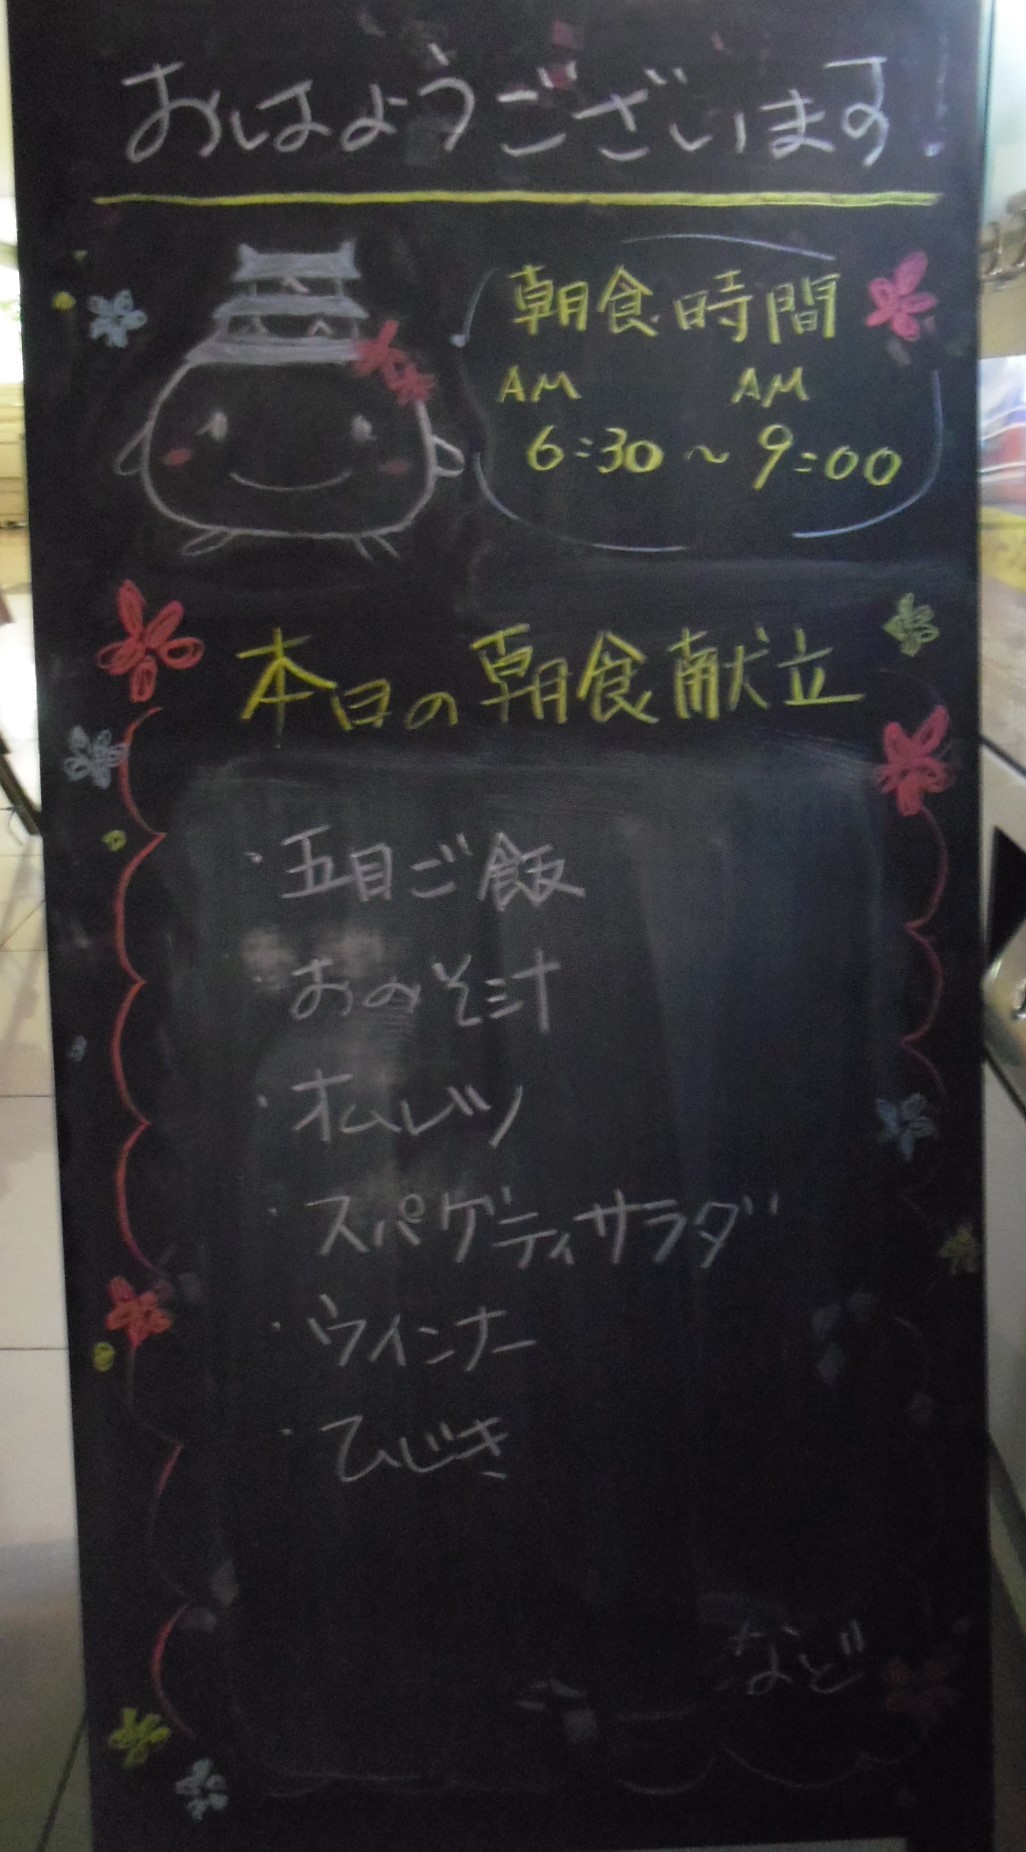 おはようございます!
朝食時間
AM AM
6:30～9:00
本日の朝食献立
・五目ご飯
・おみそ汁
・オムレツ
・スパゲティサラダ
・ウインナー
・ひじき
など